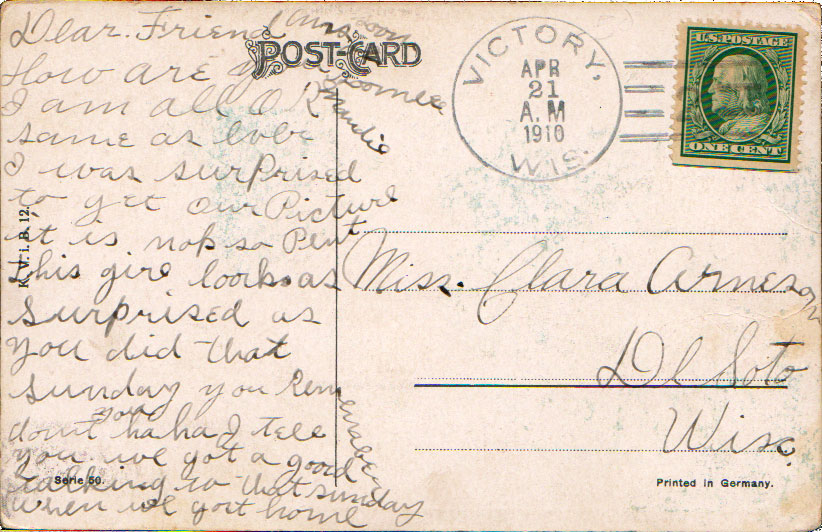 Dear Friend
How are you
I am all O K
same as ever
I was surprised
to get our Picture
it is not so
this girl looks as
surprised as
you did that
sunday you Remember
dont you haha I tell
you we got a good
talking to that sunday
when we got home
ans soon
to me
Maudie
POST-CARD
VICTORY,
APR
21
A.M
1910
WIS.
U.S. POSTAGE
ONE CENT
K.V.i.B.12.
Miss. Clara Arneson
De Soto
Wisc.
Serie 50.
Printed in Germany.